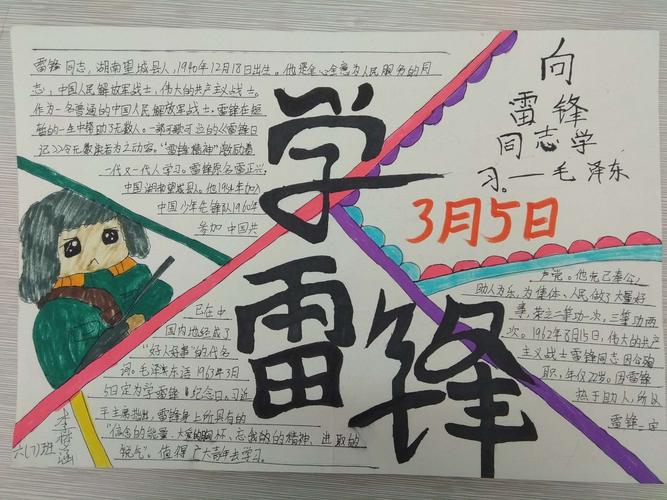 雷锋同志,湖南望城县人,1940年12月18日出生。他是全心全意为人民服务的同
志,中国人民解放军战士,伟大的共产主义战士。
作为一名普通的中国人民解放军战士,雷锋在短
暂的一生中帮助了无数人。一部可歌可泣的《雷锋日
记》令无数读者为之动容。"雷锋精神"激励着
一代又一代人学习。雷锋原名雷正兴,
中国湖南望城县人。他1954年加入
中国少年先锋队1960年
参加中国共
向
雷锋
同志学
习。—毛泽东
学
雷
锋
3月5日
产党。他克己奉公,
助人为乐,为集体、人民做了大量好
事,荣立二等功一次,三等功两
次。1962年8月15日,伟大的共产
主义战士雷锋同志因公殉
职,年仅22岁。因雷锋
热于助人所以
雷锋一定
已在中
国内地经成了
"好人好事"的代名
词。毛泽东还1963年3月
5日定为学雷锋纪念日。习近
平主席指出,雷锋身上所具有的
"信念的能量、大爱的胸怀、忘我的的精神、进取的
锐气"。值得广大青年去学习。
六(7)班
李
涵